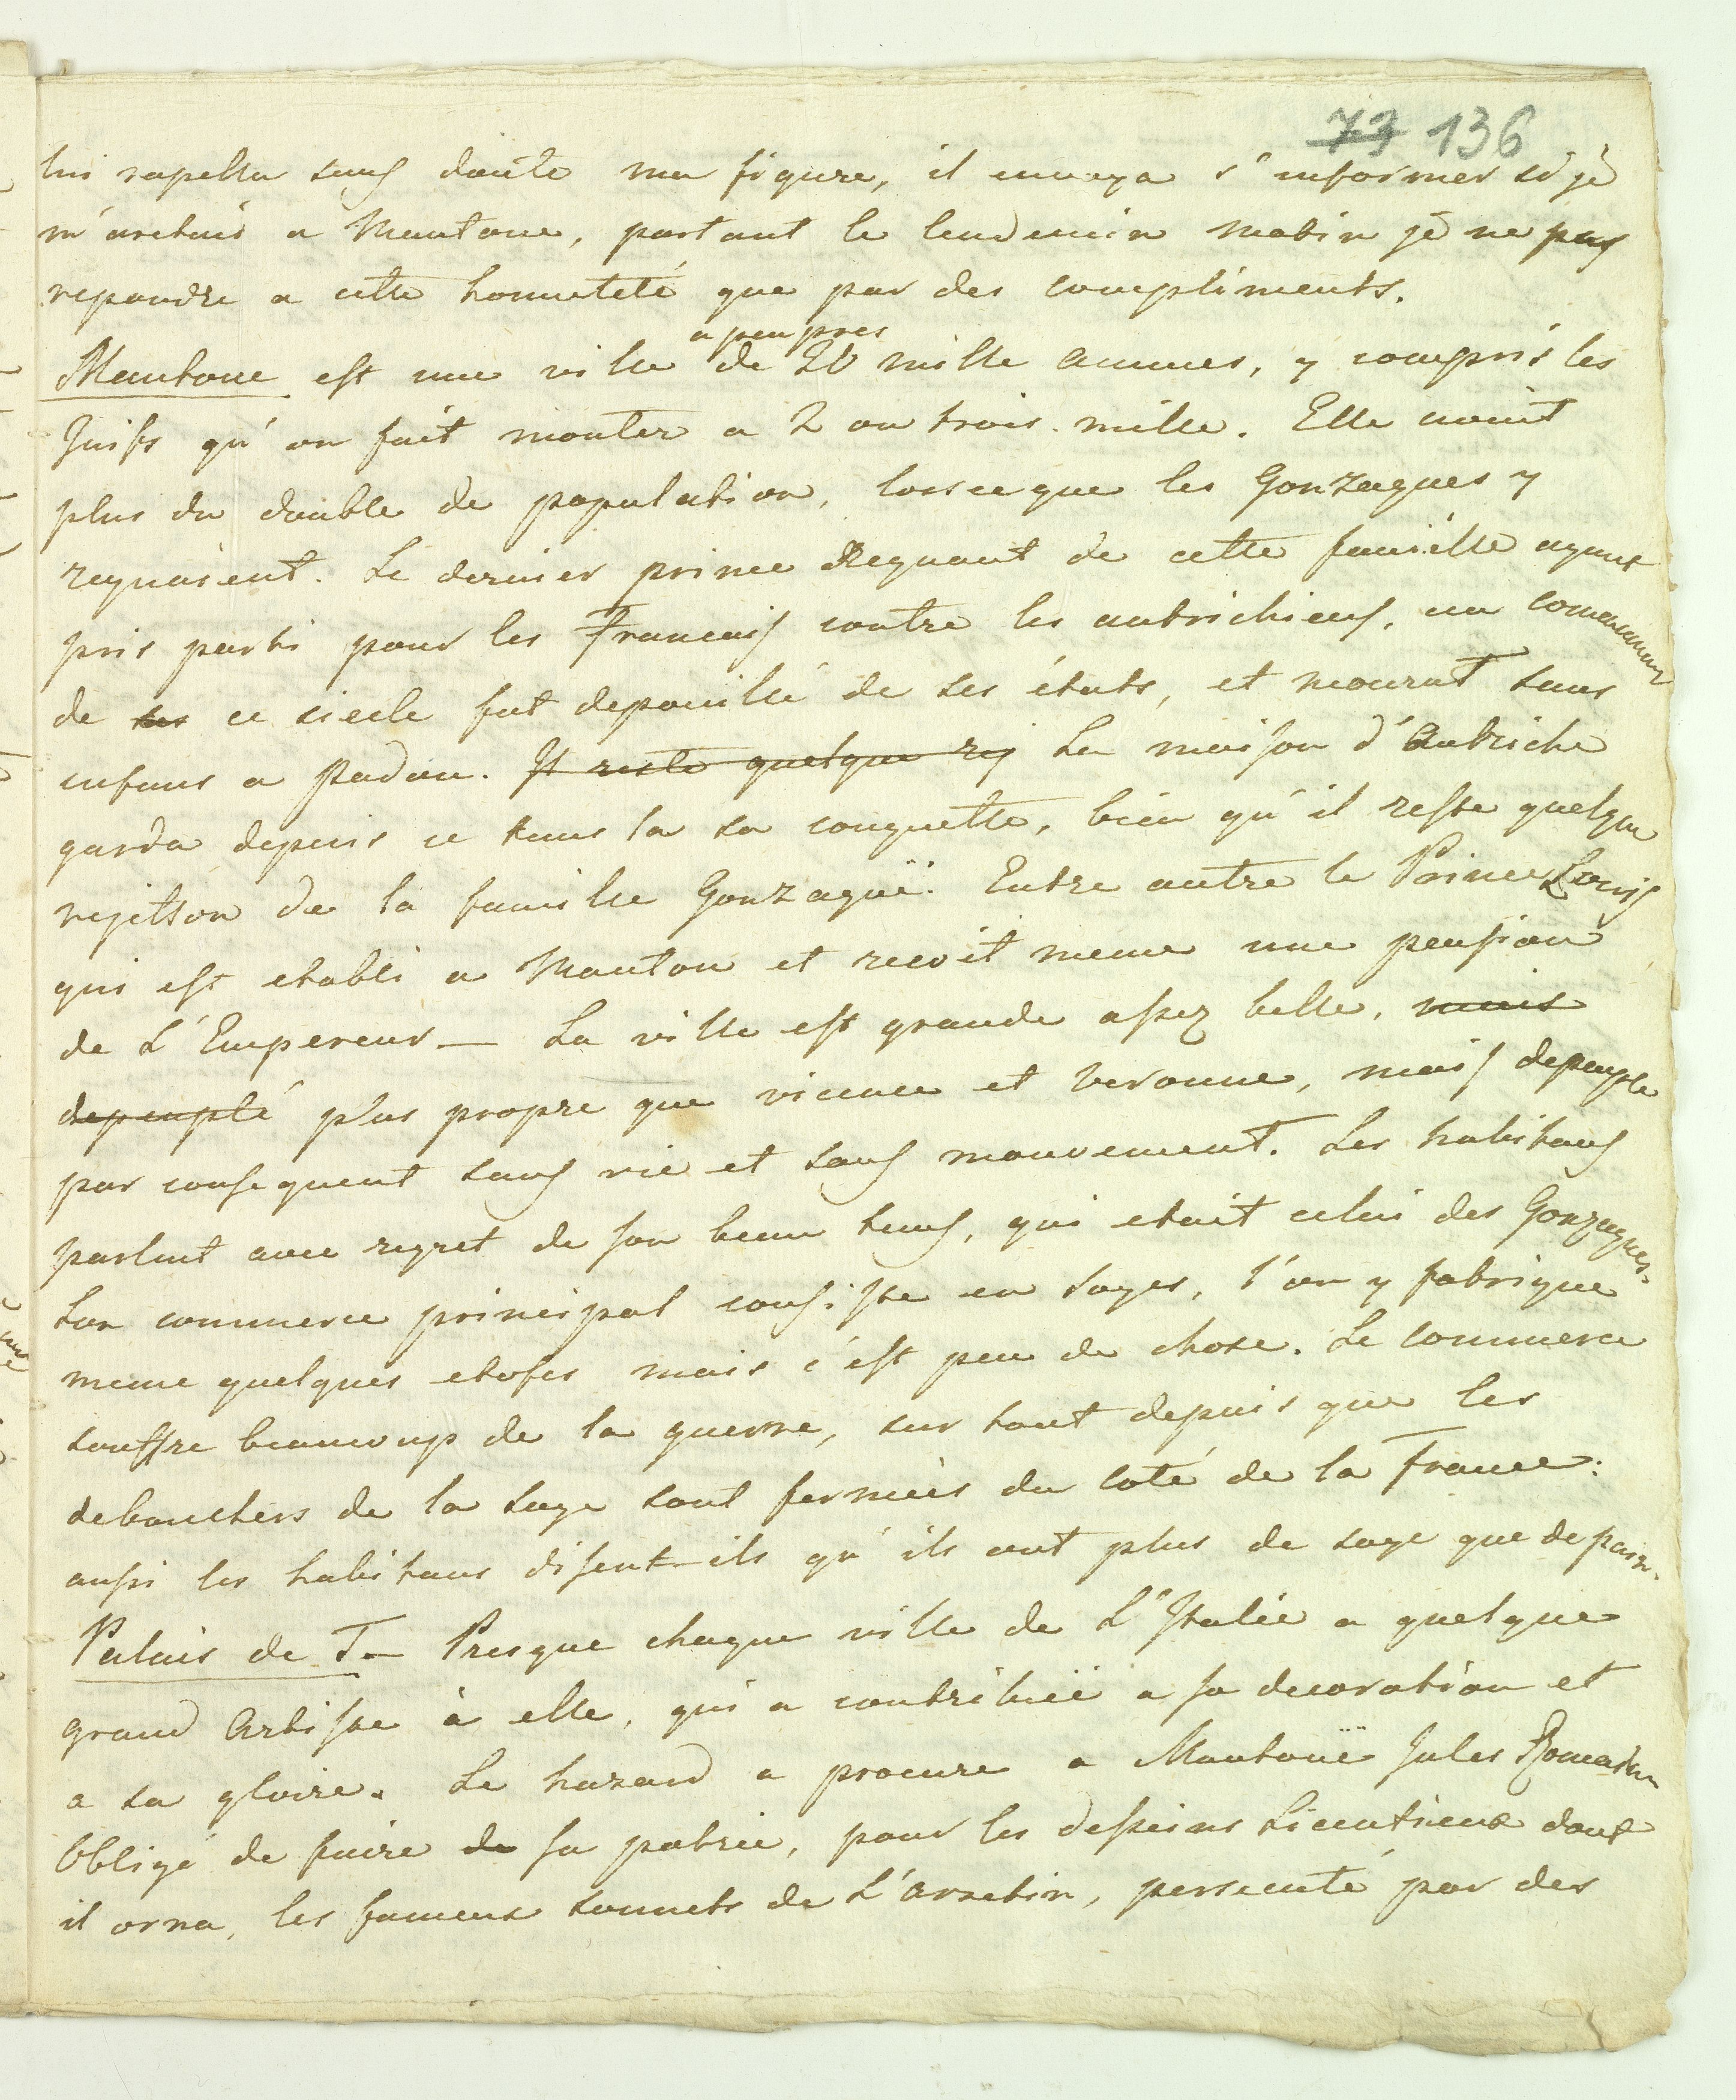 73 136
lui rapella sans doute ma figure, il envoya s'informer si je
m'aretais a Mantoue, partant le lendemain matin je ne pus
repondre a cette honneteté que par des compliments.
a peu pres
Mantoue est une ville de 20 mille ammes, y compris les
Juifs qu'on fait monter a 2 ou trois mille. Elle avait
plus du double de population, lorsceque les Gonzagues y
regnaient. Le dernier prince Regnant de cette famille ayant
pris parti pour les Francais contre les autrichiens, au commencement
de ses ce siecle fut depouillé de ses états, et mourut sans
enfans a Padou. Il reste quelque rej La maison d'Autriche
garda depuis ce tems la sa conquette, bien qu'il reste quelque
rejetton de la famille Gonzaguë. Entre autre le Prince Louis
qui est etabli a Mantou et recoit meme une pension
de L'Empereur — La ville est grande assez belle, mais
depeuplé plus propre que vicence et veronne, mais depeuple
par consequent sans vie et sans mouvement. Les habitans
parlent avec regret de son beau tems, qui etait celui des Gonzagues.
Son commerce principal consiste en soyes, l'on y fabrique
meme quelques etofes mais c'est peu de chose. Le commerce
souffre beaucoup de la guerre, sur tout depuis que les
debouchers de la soye sont fermés du coté de la France:
aussi les habitans disent-ils qu'ils ont plus de soye que de pain.
Palais de T— Presque chaque ville de L'Italie a quelque
grand Artiste à elle, qui a contribuë a sa decoration et
a sa gloire. Le hazard a procure a Mantouë Jules Romain
Obligé de fuire de sa patrie, pour les desseins Licentieux dont
il orna, les fameux sonnets de L'Aretin, persecuté par des